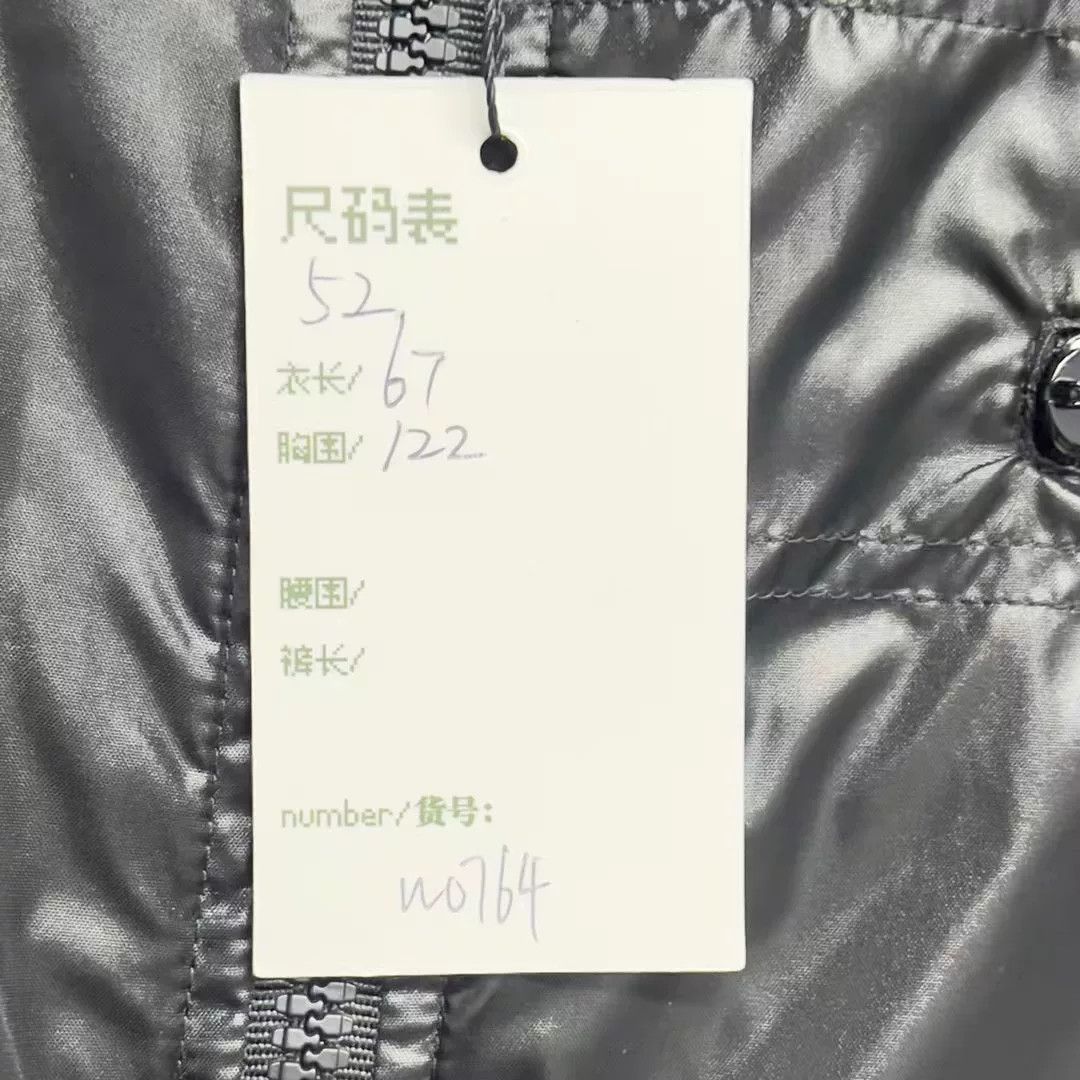 尺码表
52
衣长/ 67
胸围/ 122
腰围/
裤长/
number/货号:
W0764